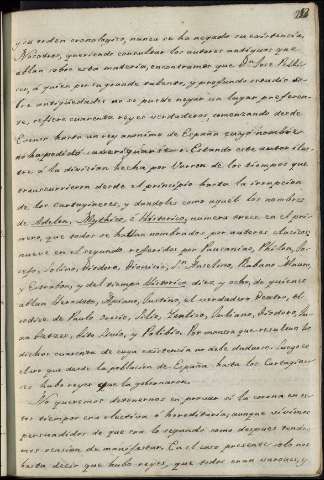 y su orden cronologico, nunca se ha negado su existencia,
Nosotros, queriendo consultar los autores antiguos que
ablan sobre esta materia, encontramos que Dn. Jose Pelli-
cer, á quien por su grande talento, y profundo estudio de
las antigüedades no se puede negar un lugar preferen-
te, refiere cuarenta reyes verdaderos, comenzando desde
hasta un rey anonimo de España cuyo nombre
no ha podido averiguarse. Estando este autor ilus-
tre á la división hecha por Varron de los tiempos que
transcurrieron desde el principio hasta la irrupcion
de los cartagineses, y dandoles como aquel los nombres
de Adelon, Mythico, ó Historico, numera trece en el pri-
mero, que todos se hallan nombrados, por autores clasicos;
nueve en el segundo referidos por Pausanias, Philon, Jo-
sefo, Solino, Diodoro, Dionisio, Sn. Anselmo, Rabano Mauro,
y Estrabon; y del tiempo Historico diez, y ocho, de quienes
ablan Herodoto, Apiano, Justino, el verdadero Dextro, el
de Paulo Orosio, Silio, Luciano, Isidoro, Ju-
an Tzetzes, Tito Livio, y Polibio. Por manera que resultan los
dichos cuarenta de cuya existencia no debe dudarse. Luego es
claro que desde la poblacion de España hasta los Cartagine-
ses hubo reyes que la gobernaron.
No queremos detenernos en provar si la corona en es-
tos tiempos era electiva ó hereditaria; aunque vivimos
persuadidos de que era lo segundo como despues tendre-
mos ocasion de manifestar. En el caso presente solo nos
basta decir que hubo reyes, que todos eran varones, y